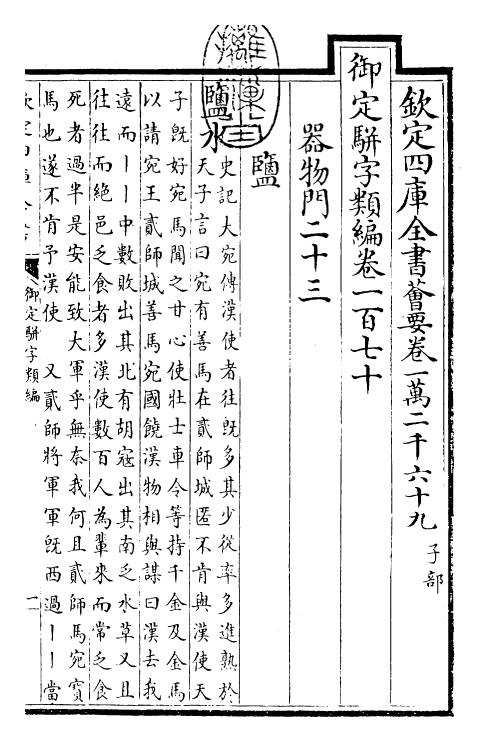 欽定四庫全書薈要卷一萬二千六十九 子部
御定駢字類編卷一百七十
器物門二十三
鹽
鹽水
史記大宛傳漢使者往旣多其少從率多進熟於
天子言曰宛有善馬在貳師城匿不肯與漢使天
子旣好宛馬聞之甘心使壯士車令等持千金及金馬
以請宛王貳師城善馬宛國饒漢物相與謀曰漢去我
遠而丨丨中數敗出其北有胡寇出其南乏水草又且
往往而絶邑乏食者多漢使數百人為輩來而常乏食
死者過半是安能致大軍乎無奈我何且貳師馬宛寳
馬也遂不肯予漢使 又貳師將軍軍旣西過丨丨當
御定駢字類編
一